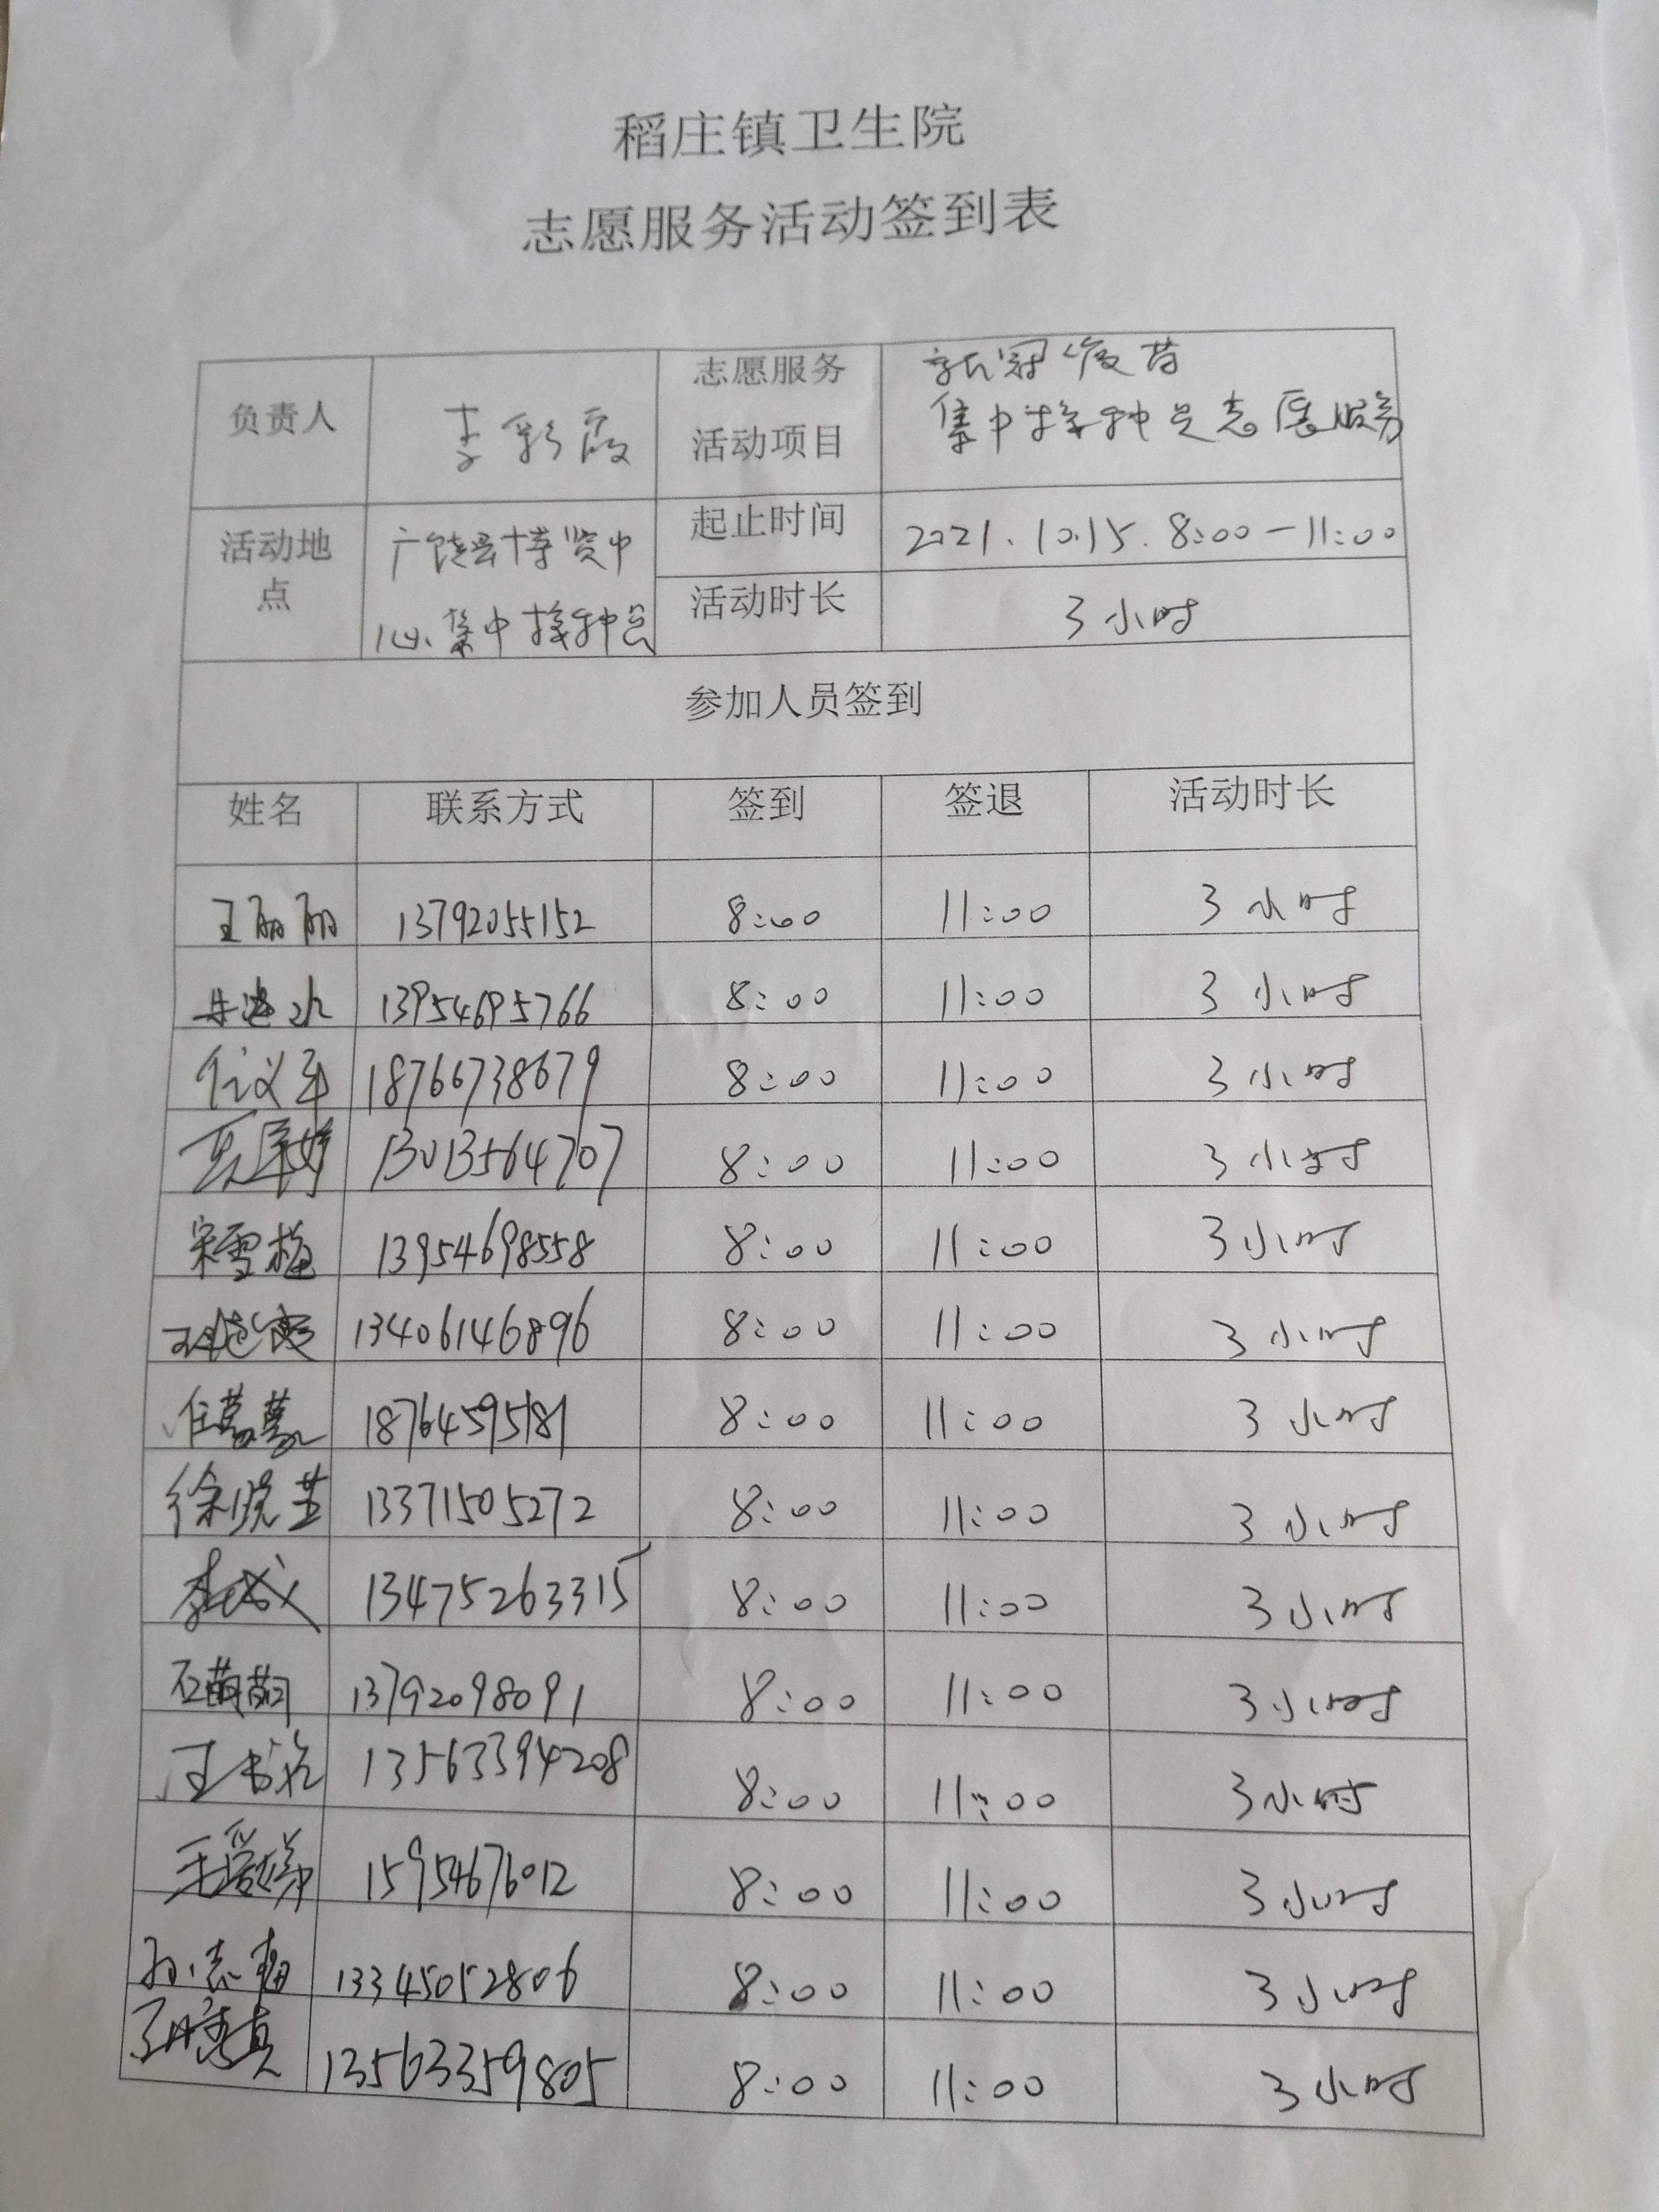 稻庄镇卫生院
志愿服务活动签到表
负责人 李彩霞 志愿服务活动项目 新冠疫苗
集中接种点志愿服务
活动地点 广饶县博览中
心集中接种点
起止时间 2021.10.15. 8:00-11:00
活动时长 3小时
参加人员签到
姓名 联系方式 签到 签退 活动时长
王丽丽 13792055152 8:00 11:00 3小时
13954695766 8:00 11:00 3小时
任义军 18766738679 8:00 11:00 3小时
13013564707 8:00 11:00 3小时
宋雪梅 13954698558 8:00 11:00 3小时
13406146896 8:00 11:00 3小时
18764595181 8:00 11:00 3小时
徐晓 13371505272 8:00 11:00 3小时
13475263315 8:00 11:00 3小时
石萌萌 13792098091 8:00 11:00 3小时
王 13563394208 8:00 11:00 3小时
15954676012 8:00 11:00 3小时
孙志梅 13345052806 8:00 11:00 3小时
13563359805 8:00 11:00 3小时